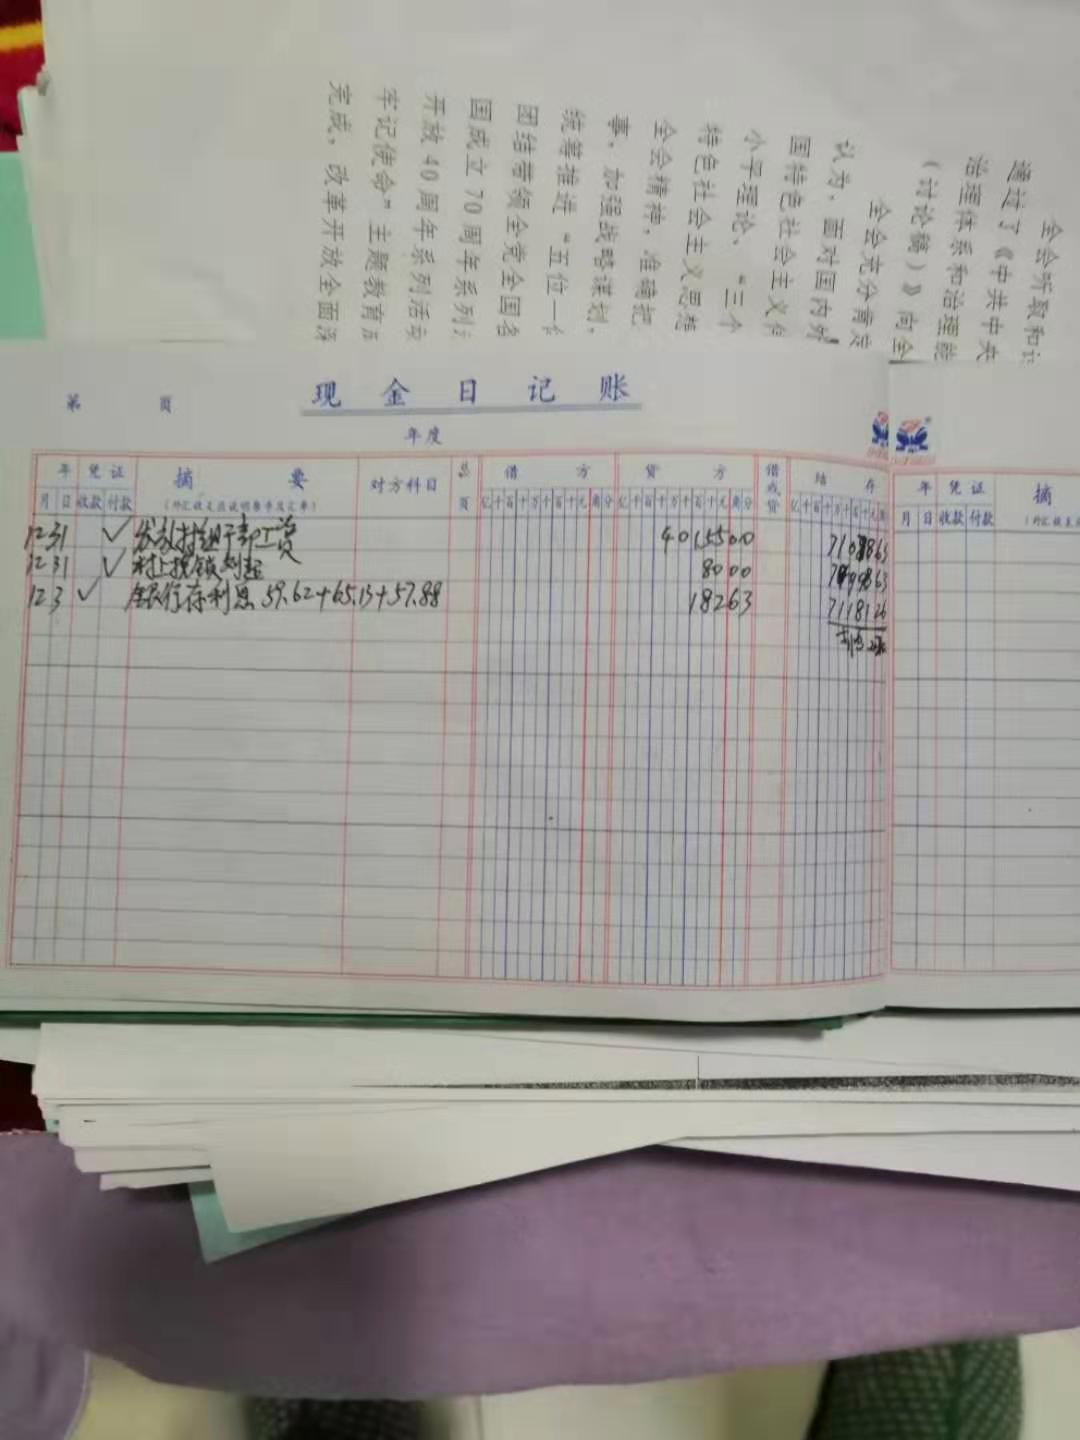 全会听取和讨
通过了《中共中央
治理体系和治理能
（讨论稿）》向全
全会充分肯定
认为，面对国内外
国特色社会主义伟
小平理论、“三个
特色社会主义思想
全会精神，准确把
事，加强战略谋划，
统筹推进“五位一体
团结带领全党全国各
国成立70周年系列
开放40周年系列活动
牢记使命”主题教育
完成，改革开放全面深
现金日记账
第 页
年度
年 凭证 摘要 对方科目 总页 借方 贷方 借或贷 结存
月 日 收款 付款 （外汇收支应说明原币及汇率） 亿千百十万千百十元角分 亿千百十万千百十元角分 亿千百十万千百十元角
12 31 ✓ 发放村组干部工资 4015500
12 31 ✓ 村上换锁 8000
12 3 ✓ 银行存利息 59.62+65.13+57.88 18263 7118126
年 凭证 摘
月 日 收款 付款 （外汇收支